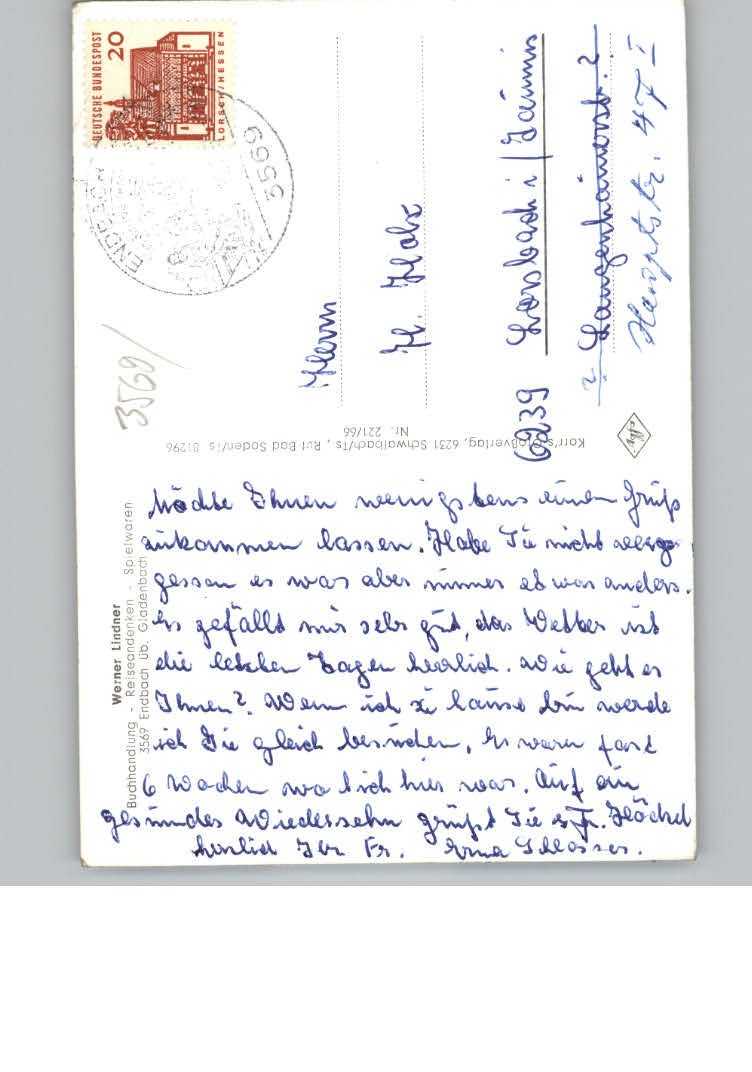 DEUTSCHE BUNDESPOST
20
LORSCH / HESSEN
ENDBACH
3569
3569/
Herrn
H. Holz
6239 Lorsbach i/Taunus
? Langenhainerstr. 2
Hauptstr. 47 I
Korr's Großverlag, 6231 Schwalbach/Ts., Ruf Bad Soden/Ts. 81296
Nr. 221/66
Werner Lindner
Buchhandlung - Reiseandenken - Spielwaren
3569 Endbach üb. Gladenbach
Möchte Ihnen wenigstens einen Gruß
zukommen lassen. Habe Sie nicht verge-
gessen es war aber immer etwas anders.
Es gefällt mir sehr gut, das Wetter ist
die letzten Tagen herrlich. Wie geht es
Ihnen? Wenn ich zu hause bin werde
ich Sie gleich besuchen. Es waren fast
6 Wochen wo ich hier war. Auf ein
gesundes Wiedersehn grüßt Sie Fr. Höckel
herzlich Ihr Fr. Erna Schlosser.